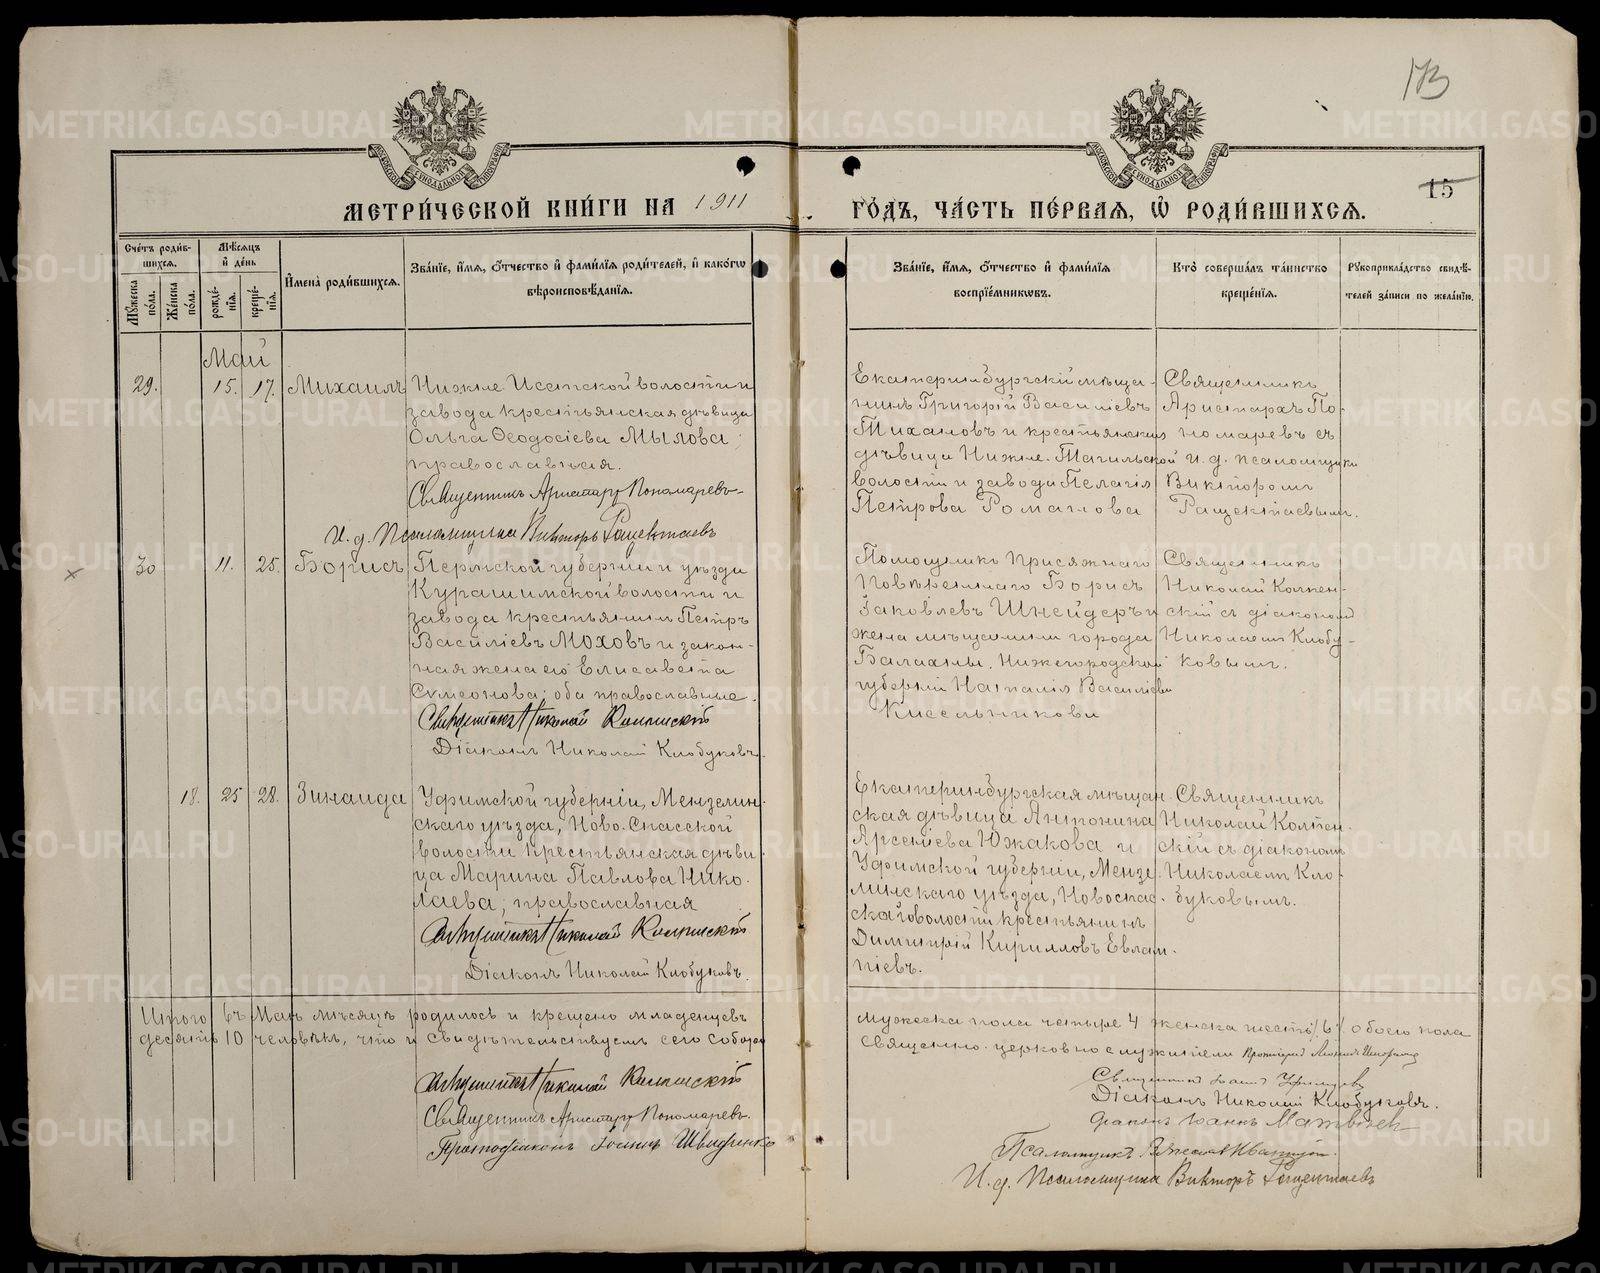 173
15
МЕТРИ́ЧЕСКОЙ КНИ́ГИ НА 1911
ГО́ДЪ, ЧА́СТЬ ПЕ́РВАѦ, Ѡ҆ РОДИ́ВШИХСѦ.
Сче́тъ роди́в-
шихсѧ.
Мꙋ́жеска по́ла.
Же́нска по́ла.
Мѣ́сѧцъ и҆ де́нь
рожде́-
нїѧ.
креще́-
нїѧ.
И҆мена̀ роди́вшихсѧ.
Зва́нїе, и҆́мѧ, ѻ҆́тчество и҆ фами́лїѧ роди́телей, и҆ како́гѡ
вѣроисповѣ́данїѧ.
Зва́нїе, и҆́мѧ, ѻ҆́тчество и҆ фами́лїѧ
воспрїе́мникѡвъ.
Кто̀ соверша́лъ та́инство
креще́нїѧ.
Рꙋкоприкла́дство свидѣ́-
телей за́писи по жела́нїю.
Май
29. 15. 17. Михаилъ
Нижне Исетской волости и
завода крестьянская дѣвица
Ольга Ѳеодосіева Мылова;
православная.
Священникъ Аристархъ Пономаревъ
И. д. Псаломщика Викторъ Ращектаевъ
Екатеринбургскій мѣща-
нинъ Григорій Василіевъ
Тихановъ и крестьянская
дѣвица Нижне-Тагильской
волости и завода Пелагія
Петрова Романова
Священникъ
Аристархъ По-
номаревъ съ
и. д. псаломщика
Викторомъ
Ращектаевымъ.
30 11. 25. Борисъ
Пермской губерніи и уѣзда
Курашимской волости и
завода крестьянинъ Петръ
Василіевъ Моховъ и закон-
ная жена его Елисавета
Сѵмеонова; оба православные.
Священникъ Николай
Діаконъ Николай Клобуковъ.
Помощникъ присяжнаго
повѣреннаго Борисъ
Іаковлевъ Шнейдеръ и
жена мѣщанина города
Балахны, Нижегородской
губерніи Наталія Василіева
Кисельникова
Священникъ
Николай
скій съ діакономъ
Николаемъ Клобу-
ковымъ.
18. 25 28. Зинаида
Уфимской губерніи, Мензелин-
скаго уѣзда, Ново-Спасской
волости крестьянская дѣви-
ца Марина Павлова Нико-
лаева; православная
Священникъ Николай
Діаконъ Николай Клобуковъ.
Екатеринбургская мѣщан-
ская дѣвица Антонина
Арсеніева Южакова и
Уфимской губерніи, Мензе-
линскаго уѣзда, Новоспас-
ской волости крестьянинъ
Димитрій Кирилловъ Евлам-
піевъ.
Священникъ
Николай
скій съ діакономъ
Николаемъ Кло-
буковымъ.
Итого въ Маѣ мѣсяцѣ родилось и крещено младенцевъ
мужеска пола четыре 4 женска шесть /6/ обоего пола
десять 10 человѣкъ, что и свидѣтельствуемъ сего собора
священно-церковно служители Протоіерей
Священникъ Николай
Священникъ Аристархъ Пономаревъ.
Протодіаконъ Іоаннъ
Священникъ Іоаннъ
Діаконъ Николай Клобуковъ.
Діаконъ Іоаннъ
Псаломщикъ
И. д. Псаломщика Викторъ Ращектаевъ
METRIKI.GASO-URAL.RU